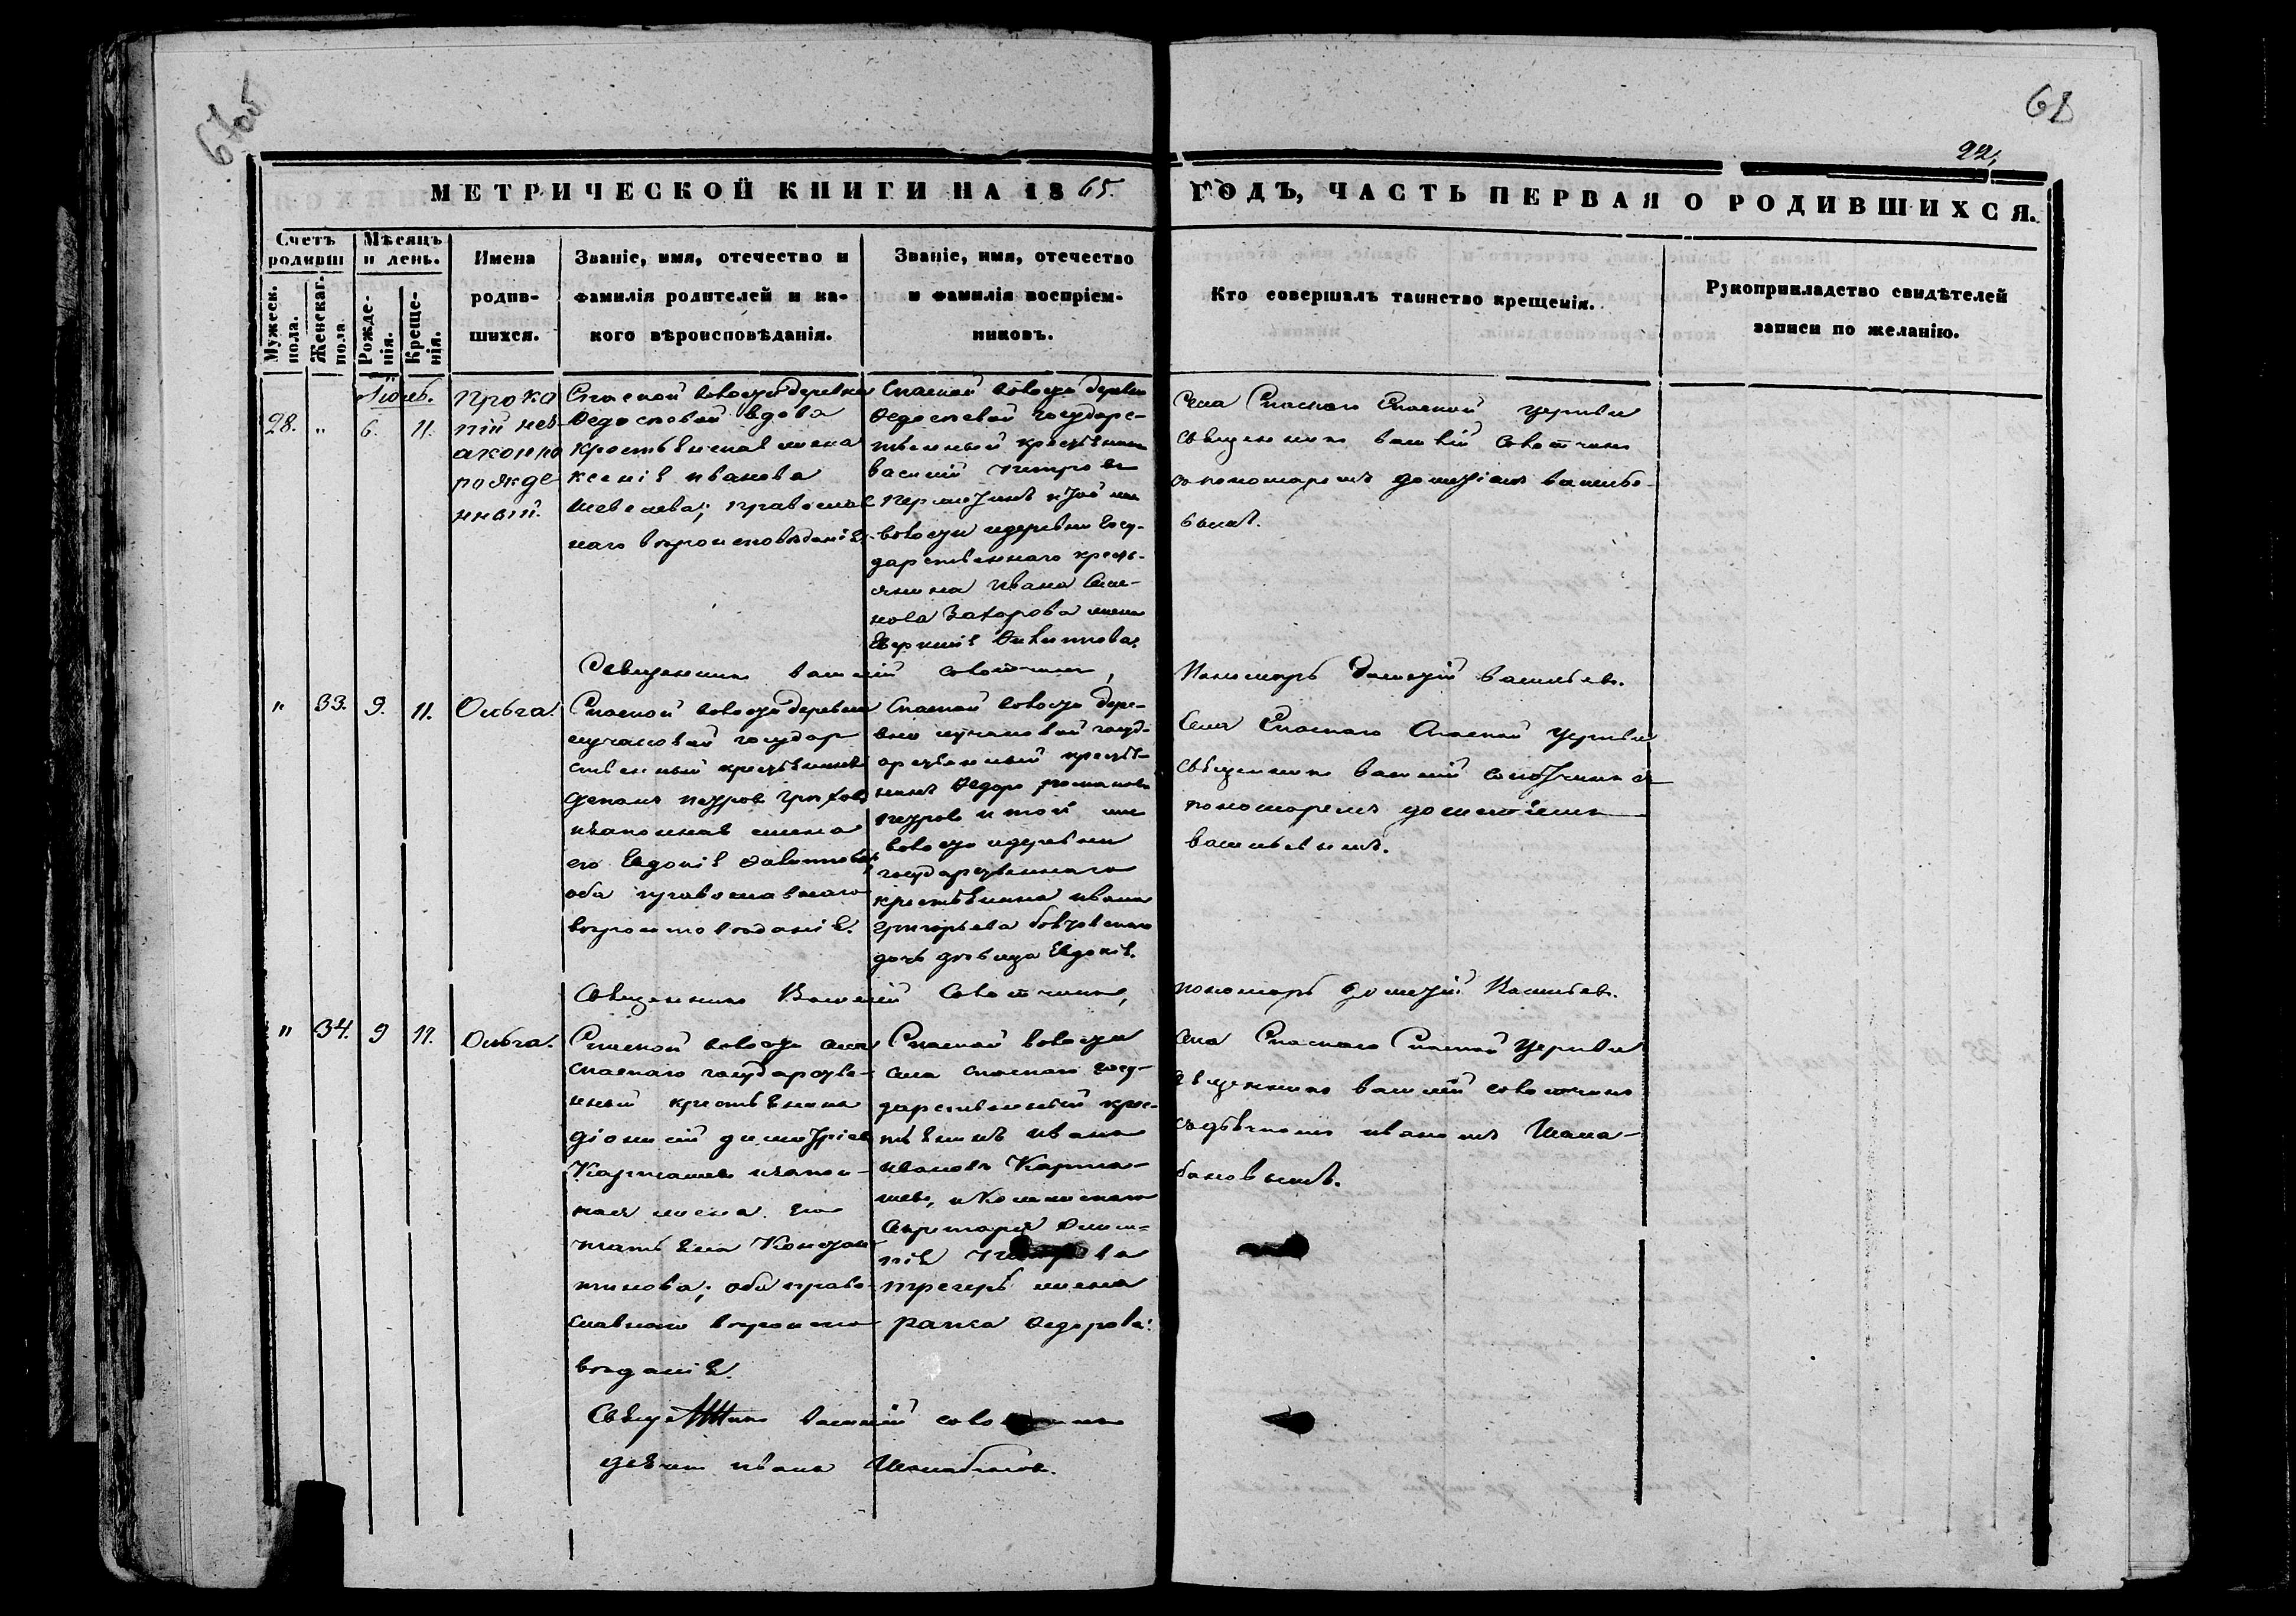 67об
68
22,
МЕТРИЧЕСКОЙ КНИГИ НА 1865.
ГОДЪ, ЧАСТЬ ПЕРВАЯ О РОДИВШИХСЯ.
Счетъ родивш
Мужеск. пола.
Женскаг. пола
Мѣсяцъ и день.
Рожде-нія.
Креще-нія.
Имена
родив-
шихся.
Званіе, имя, отечество и
фамилія родителей и ка-
кого вѣроисповѣданія.
Званіе, имя, отечество
и фамилія воспріем-
никовъ.
Кто совершалъ таинство крещенія.
Рукоприкладство свидѣтелей
записи по желанію.
Іюль.
28. " 6. 11.
Проко
пій нез
аконно
рожде
нный.
Спаской волости деревни
Федосовой вдова
крестьянская жена
Ксенія Иванова
Шевелева; православ
наго вѣроисповѣданія.
Спаской волости деревни
Федосовой государс-
твенный крестьянинъ
Василій Петровъ
и той же
волости и деревни госу-
дарственнаго кресть-
янина Ивана Семе-
нова Захарова жена
Села Спаскаго Спаской церкви
священникъ Василій
съ пономаремъ Димитріемъ Василье-
вымъ.
Священникъ Василій
Пономарь Димитрій Васильевъ.
" 33. 9. 11. Ольга.
Спаской волости деревни
государ
ственный крестьянинъ
Петровъ
и законная жена
его Евдокія
оба православнаго
вѣроисповѣданія.
Спаской волости дере-
вни госуд-
арственный крестья-
нинъ Федоръ Романовъ
и той же
волости и деревни
государственнаго
крестьянина Ивана
Григорьева
дочь дѣвица Евдокія.
Села Спаскаго Спаской церкви
священникъ Василій съ
пономаремъ Димитріемъ
Васильевымъ.
Священникъ Василій
пономарь Димитрій Васильевъ.
" 34. 9 11. Ольга.
Спаской волости села
Спаскаго государстве-
нный крестьянинъ
Діонисій Димитріевъ
Карташевъ и закон-
ная жена его
Татьяна Констан-
тинова; оба право-
славнаго вѣроиспо-
вѣданія.
Спаской волости
села Спаскаго госу-
дарственный крес-
тьянинъ Иванъ
Ивановъ Карта-
шевъ, и
Секретаря
жена
Федорова.
Села Спаскаго Спаской церкви
священникъ Василій
съ дьячкомъ Иваномъ Шала-
бановымъ.
Священникъ Василій
дьячекъ Иванъ Шалабановъ.